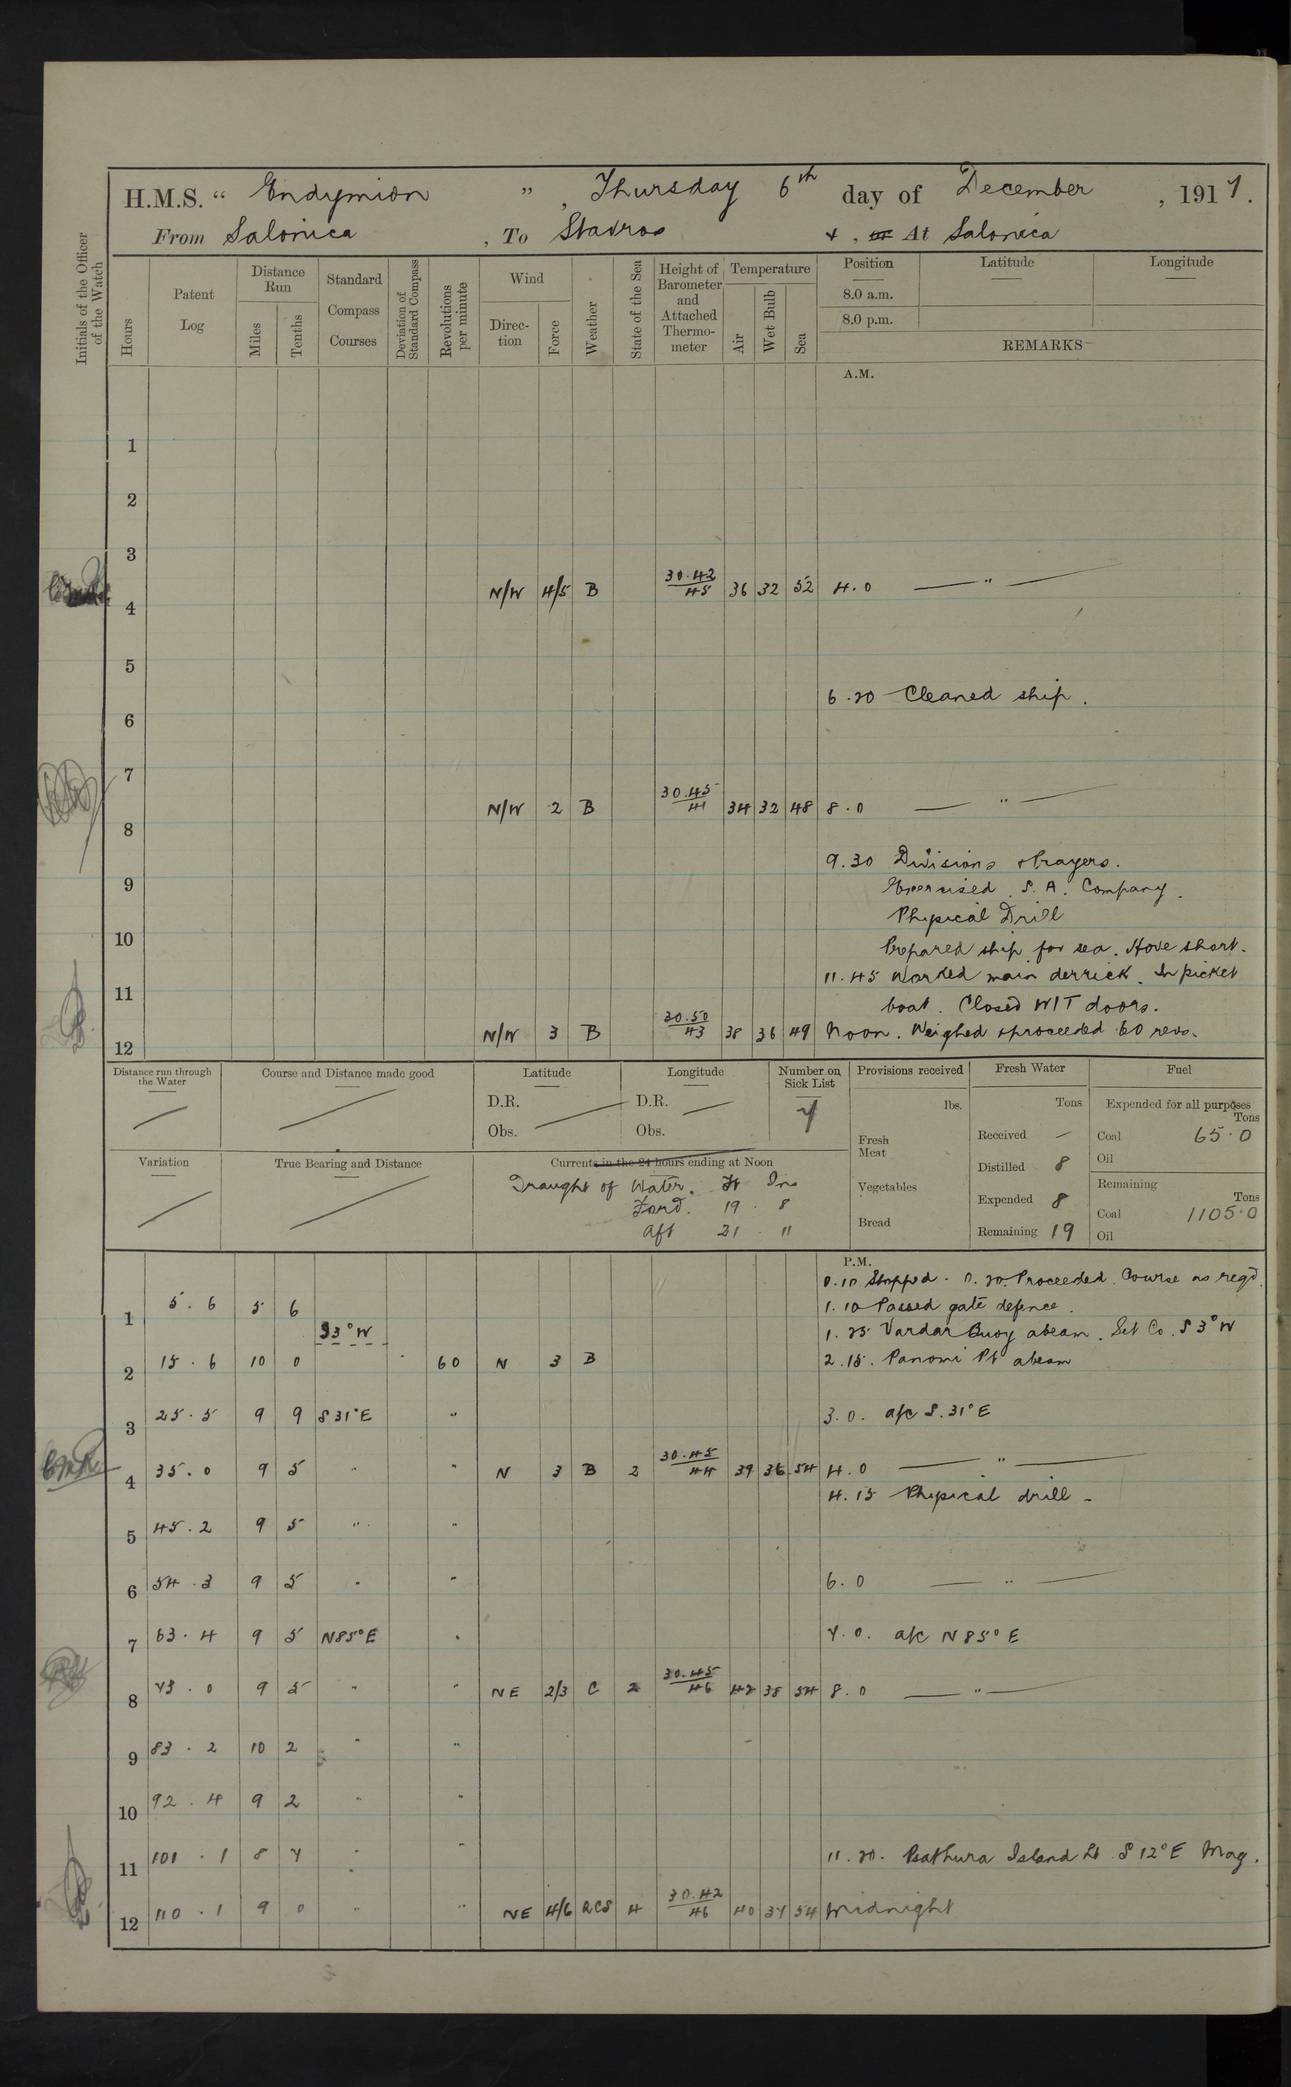 H.M.S. “ Endymion ” , Thursday 6th day of December , 1917.
From Salonica , To Stavros & , or At Salonica
Initials of the Officer of the Watch
Hours
Patent Log
Distance Run
Miles
Tenths
Standard Compass Courses
Deviation of Standard Compass
Revolutions per minute
Wind
Direction
Force
Weather
State of the Sea
Height of Barometer and Attached Thermometer
Temperature
Air
Wet Bulb
Sea
Position Latitude Longitude
8.0 a.m.
8.0 p.m.
REMARKS
A.M.
1
2
3
4 N/W 4/5 B 30.42 45 36 32 52 4.0 — " —
5
6.20 Cleaned ship.
6
7
8 N/W 2 B 30.45 41 34 32 48 8.0 — " —
9.30 Divisions & Prayers.
9 Exercised S.A. Company.
Physical Drill
10 Prepared ship for sea. Hove short.
11.45 Worked main derrick. In picket
11 boat. Closed W/T doors.
12 N/W 3 B 30.50 43 38 36 49 Noon. Weighed & proceeded 60 revs.
Distance run through the Water
Course and Distance made good
Latitude
D.R.
Obs.
Longitude
D.R.
Obs.
Number on Sick List
7
Provisions received
lbs.
Fresh Meat
Vegetables
Bread
Fresh Water
Tons
Received —
Distilled 8
Expended 8
Remaining 19
Fuel
Expended for all purposes
Tons
Coal 65.0
Oil
Remaining
Tons
Coal 1105.0
Oil
Variation
True Bearing and Distance
Currents in the 24 hours ending at Noon
Draught of Water. Ft Ins
Ford. 19 . 8
Aft 21 . 11
P.M.
0.10 Stopped. 0.20 Proceeded. Course as reqd.
1 5.6 5 6 1.10 Passed gate defence.
S3°W 1.25 Vardar Buoy abeam. Set Co. S3°W
2 15.6 10 0 60 N 3 B 2.15. Panomi Pt abeam
3 25.5 9 9 S31°E " 3.0. a/c S.31°E
4 35.0 9 5 " " N 3 B 2 30.45 44 39 36 54 4.0 — " —
4.15 Physical drill -
5 45.2 9 5 " "
6 54.3 9 5 " " 6.0 — " —
7 63.4 9 5 N85°E " 7.0. a/c N85°E
8 73.0 9 5 " " NE 2/3 C 2 30.45 46 42 38 54 8.0 — " —
9 83.2 10 2 " "
10 92.4 9 2 " "
11 101.1 8 7 " " 11.20. Psathura Island Lt S12°E Mag.
12 110.1 9 0 " " NE 4/6 30.42 46 40 37 54 Midnight